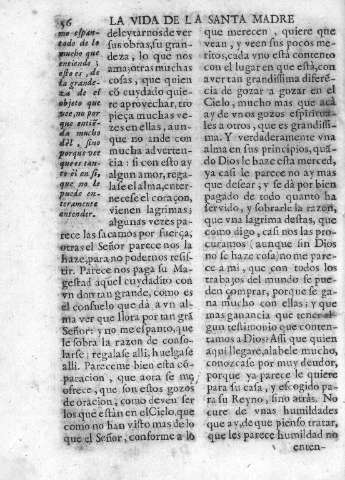 56 LA VIDA DE LA SANTA MADRE
mo espan-
tado de lo
mucho que
entiende;
esto es, de
la grande-
za de el
objeto que
vee, no por
que entiē-
da mucho
dèl, sino
porque vee
que es tan-
to èl en sí,
que no le
puede en-
teramente
entender.
deleytarnos de ver
sus obras, su gran-
deza, lo que nos
ama, otras muchas
cosas, que quien
cō cuydado quie-
re aprovechar, tro
pieça muchas ve-
zes en ellas, aun-
que no ande con
mucha adverten-
cia: si con esto ay
algun amor, rega-
lase el alma, enter-
necese el coraçon,
vienen lagrimas;
algunas vezes pa-
rece las sacamos por fuerça,
otras el Señor parece nos la
haze, para no podernos resis-
tir. Parece nos paga su Ma-
gestad aquel cuydadito con
vn don tan grande, como es
el consuelo que dà a vn al-
ma ver que llora por tan grā
Señor: y no me espanto, que
le sobra la razon de conso-
larse; regalase alli, huelgase
alli. Pareceme bien esta cō-
paracion, que aora se me
ofrece, que son estos gozos
de oracion, como deven ser
los que estàn en el Cielo, que
como no han visto mas de lo
que el Señor, conforme a lo
que merecen, quiere que
vean, y veen sus pocos me-
ritos, cada vno està contento
con el lugar en que està, con
aver tan grandissima diferē-
cia de gozar a gozar en el
Cielo, mucho mas que acà
ay de vnos gozos espiritua-
les a otros, que es grandissi-
ma. Y verdaderamente vna
alma en sus principios, quā-
do Dios le haze esta merced,
ya casi le parece no ay mas
que desear; y se dà por bien
pagado de todo quanto ha
servido, y sobrarle la razon,
que vna lagrima destas, que
como digo, casi nos las pro-
curamos (aunque sin Dios
no se haze cosa) no me pare-
ce a mi, que con todos los
trabajos del mundo se pue-
den comprar, porque se ga-
na mucho con ellas; y que
mas ganancia que tener al-
gun testimonio que conten-
tamos a Dios? Assi que quien
aqui llegare, alabele mucho,
conozcase por muy deudor,
porque ya parece le quiere
para su casa, y escogido pa-
ra su Reyno, sino atràs. No
cure de vnas humildades
que ay, de que pienso tratar,
que les parece humildad no
enten-